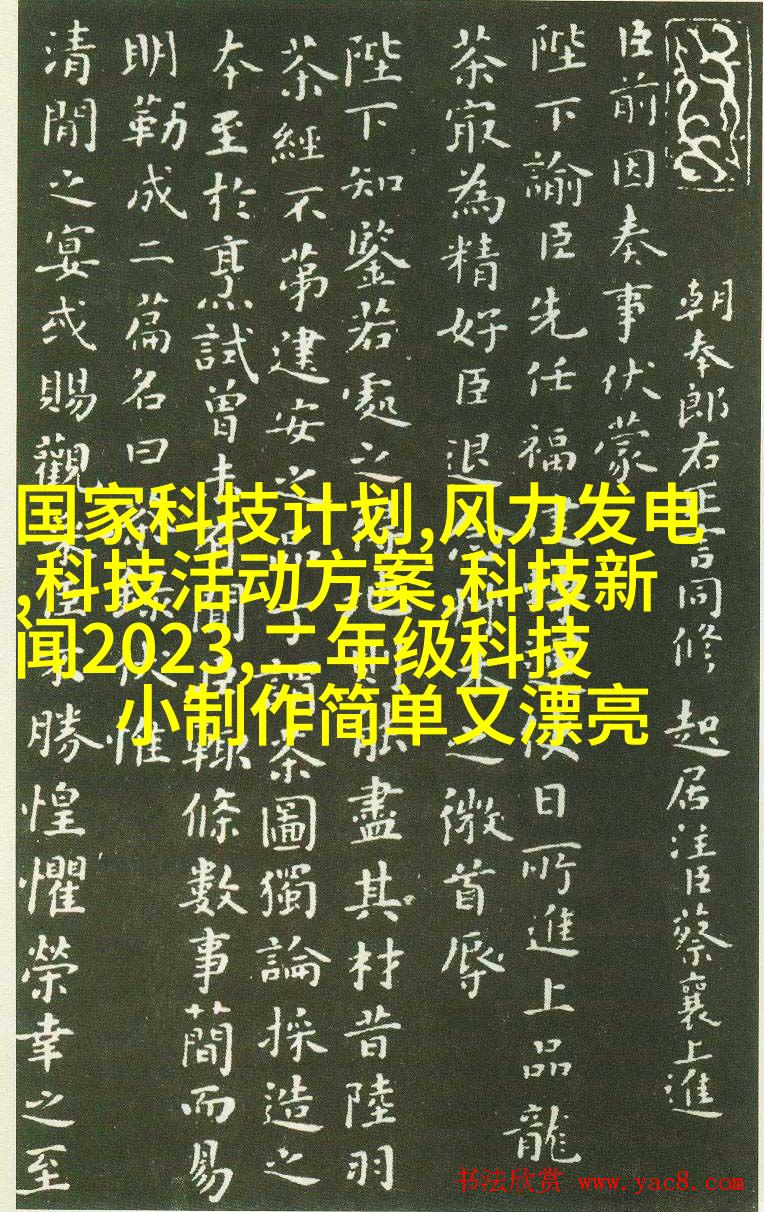 朝奉郎右正言同修起居注臣蔡襄上進
臣前因奏事伏蒙
陛下諭臣先任福建轉運使日所進上品龍
茶㝡為精好臣退念草木之微首辱
陛下知鑒若處之得地則能盡其材昔陸羽
茶經不第建安之品丁謂茶圖獨論採造之
本至於烹試曾未有聞臣輒條數事簡而易
明勒成二篇名曰茶錄伏惟
清閒之宴或賜觀采臣不勝惶懼榮幸之至
国家科技计划,风力发电
,科技活动方案,科技新
闻2023,二年级科技
小制作简单又漂亮
书法欣赏 www.yac8.com